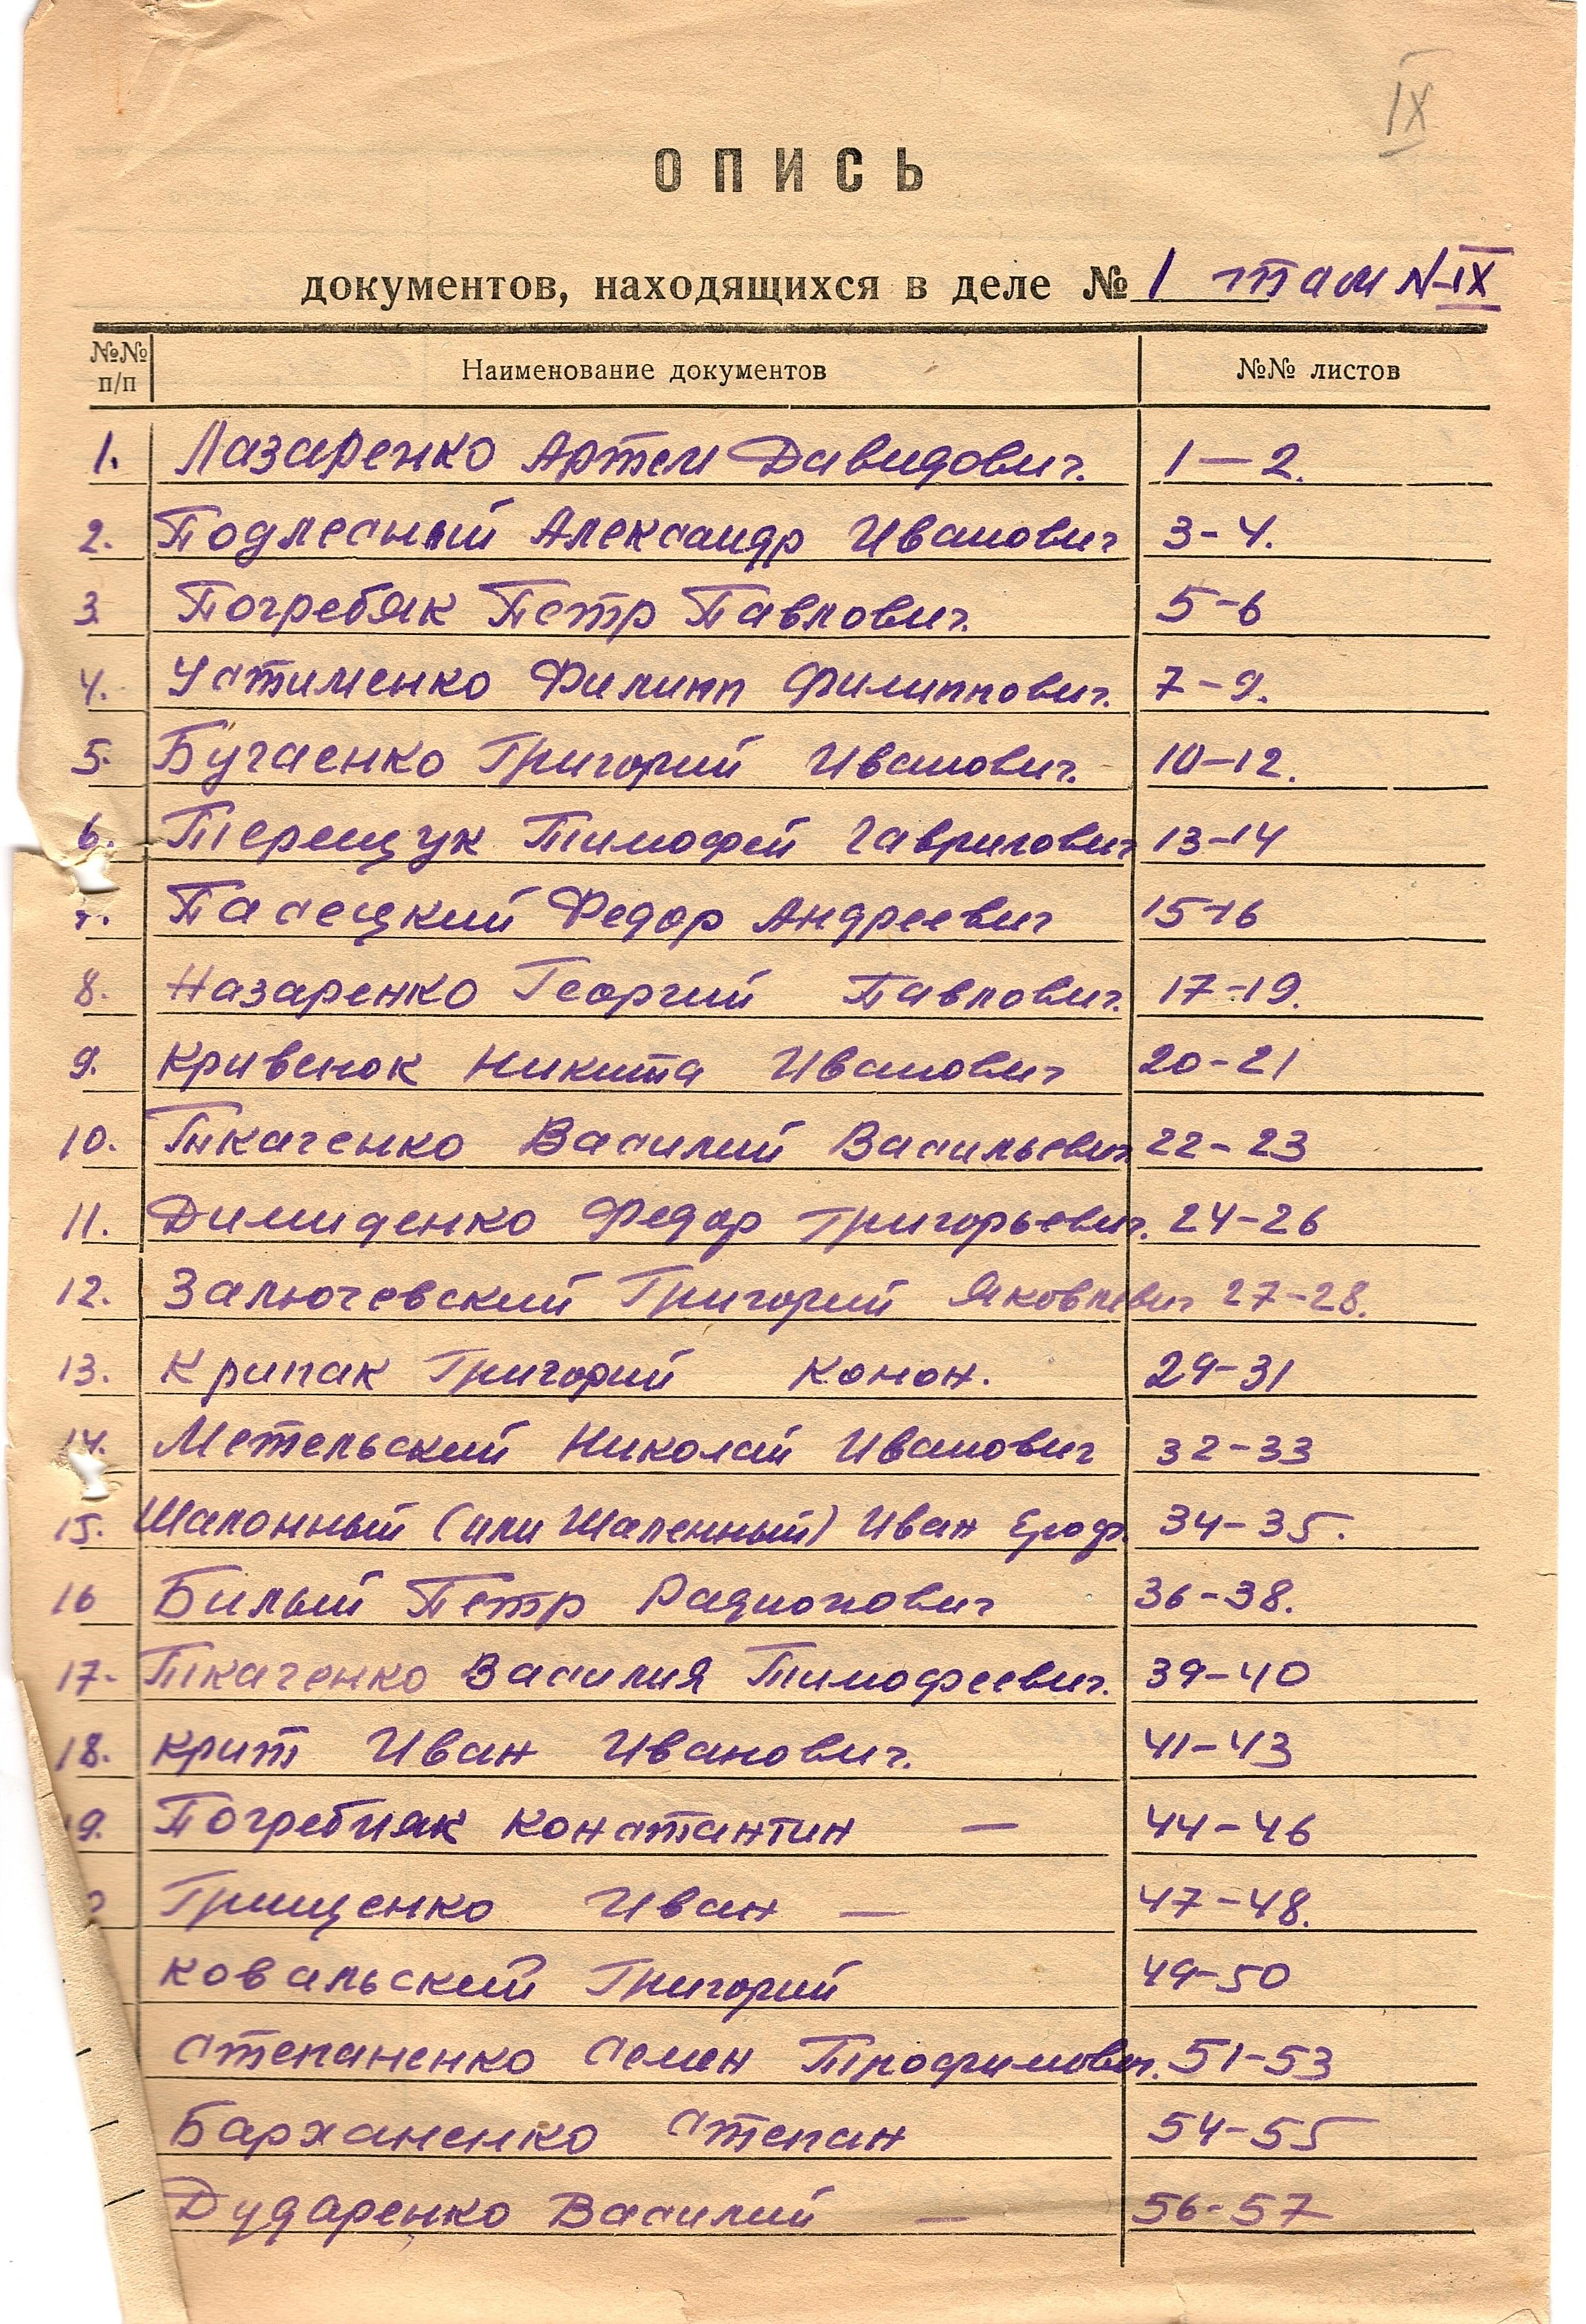 IX
ОПИСЬ
документов, находящихся в деле № 1 том N-IX
№№ п/п Наименование документов №№ листов
1. Лазаренко Артем Давидович. 1-2.
2. Подлесный Александр Иванович 3-4.
3. Погребяк Петр Павлович. 5-6
4. Устименко Филипп Филиппович. 7-9.
5. Бугаенко Григорий Иванович. 10-12.
6. Терещук Тимофей Гаврилович 13-14
7. Пасецкий Федор Андреевич 15-16
8. Назаренко Георгий Павлович. 17-19.
9. Кривенок Никита Иванович 20-21
10. Ткаченко Василий Васильевич 22-23
11. Димиденко Федор Григорьевич. 24-26
12. Залючевский Григорий Яковлевич 27-28.
13. Крипак Григорий Конон. 29-31
14. Метельский Николай Иванович 32-33
15. Шалонный (или Шаленный) Иван Ероф. 34-35.
16 Билый Петр Радионович 36-38.
17. Ткаченко Василия Тимофеевич. 39-40
18. Крит Иван Иванович. 41-43
9. Погребняк Константин — 44-46
Грищенко Иван — 47-48.
Ковальский Григорий 49-50
Степаненко Семен Трофимович. 51-53
Барханенко Степан 54-55
Дударенко Василий — 56-57